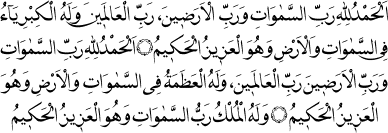 اَلْحَمْدُ لِلّٰهِ رَبِّ السَّمٰوَاتِ وَرَبِّ الْاَرَضِينَ، رَبِّ الْعَالَمِينَ وَلَهُ الْكِبْرِيَٓاءُ
فِى السَّمٰوَاتِ وَالْاَرْضِ وَهُوَ الْعَزِيزُ الْحَكِيمُ ۝ اَلْحَمْدُ لِلّٰهِ رَبِّ السَّمٰوَاتِ
وَرَبِّ الْاَرَضِينَ رَبِّ الْعَالَمِينَ، وَلَهُ الْعَظَمَةُ فِى السَّمٰوَاتِ وَالْاَرْضِ وَهُوَ
الْعَزِيزُ الْحَكِيمُ ۝ وَلَهُ الْمُلْكُ رَبُّ السَّمٰوَاتِ وَهُوَ الْعَزِيزُ الْحَكِيمُ